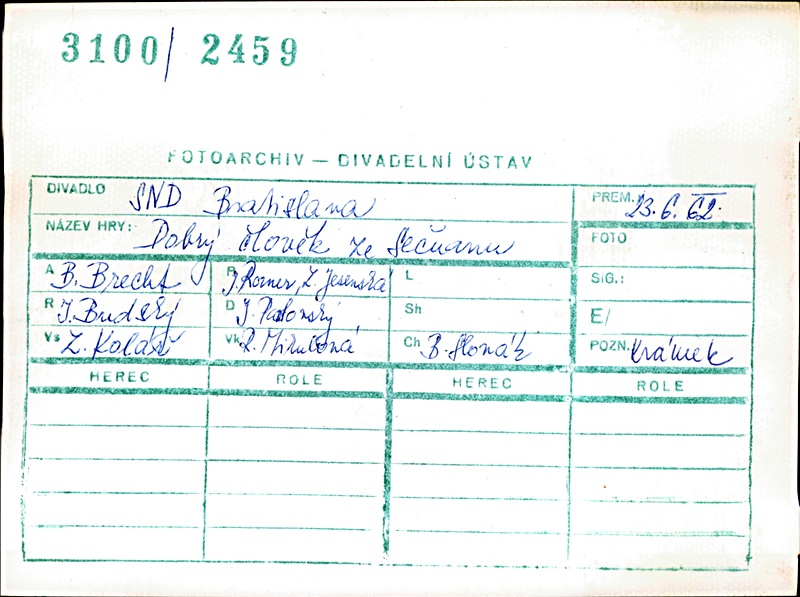 3100/ 2459
FOTOARCHIV — DIVADELNÍ ÚSTAV
DIVADLO SND Bratislava PREM. 23.6.62.
NÁZEV HRY: Dobrý člověk ze Sečuanu FOTO
A B. Brecht P J. Rozner, Z. Jesenská L SIG.:
R J. Budský D J. Pavlonský Sh E/
Vs Z. Kolář Vk Ch B. Slovák POZN.
HEREC ROLE HEREC ROLE